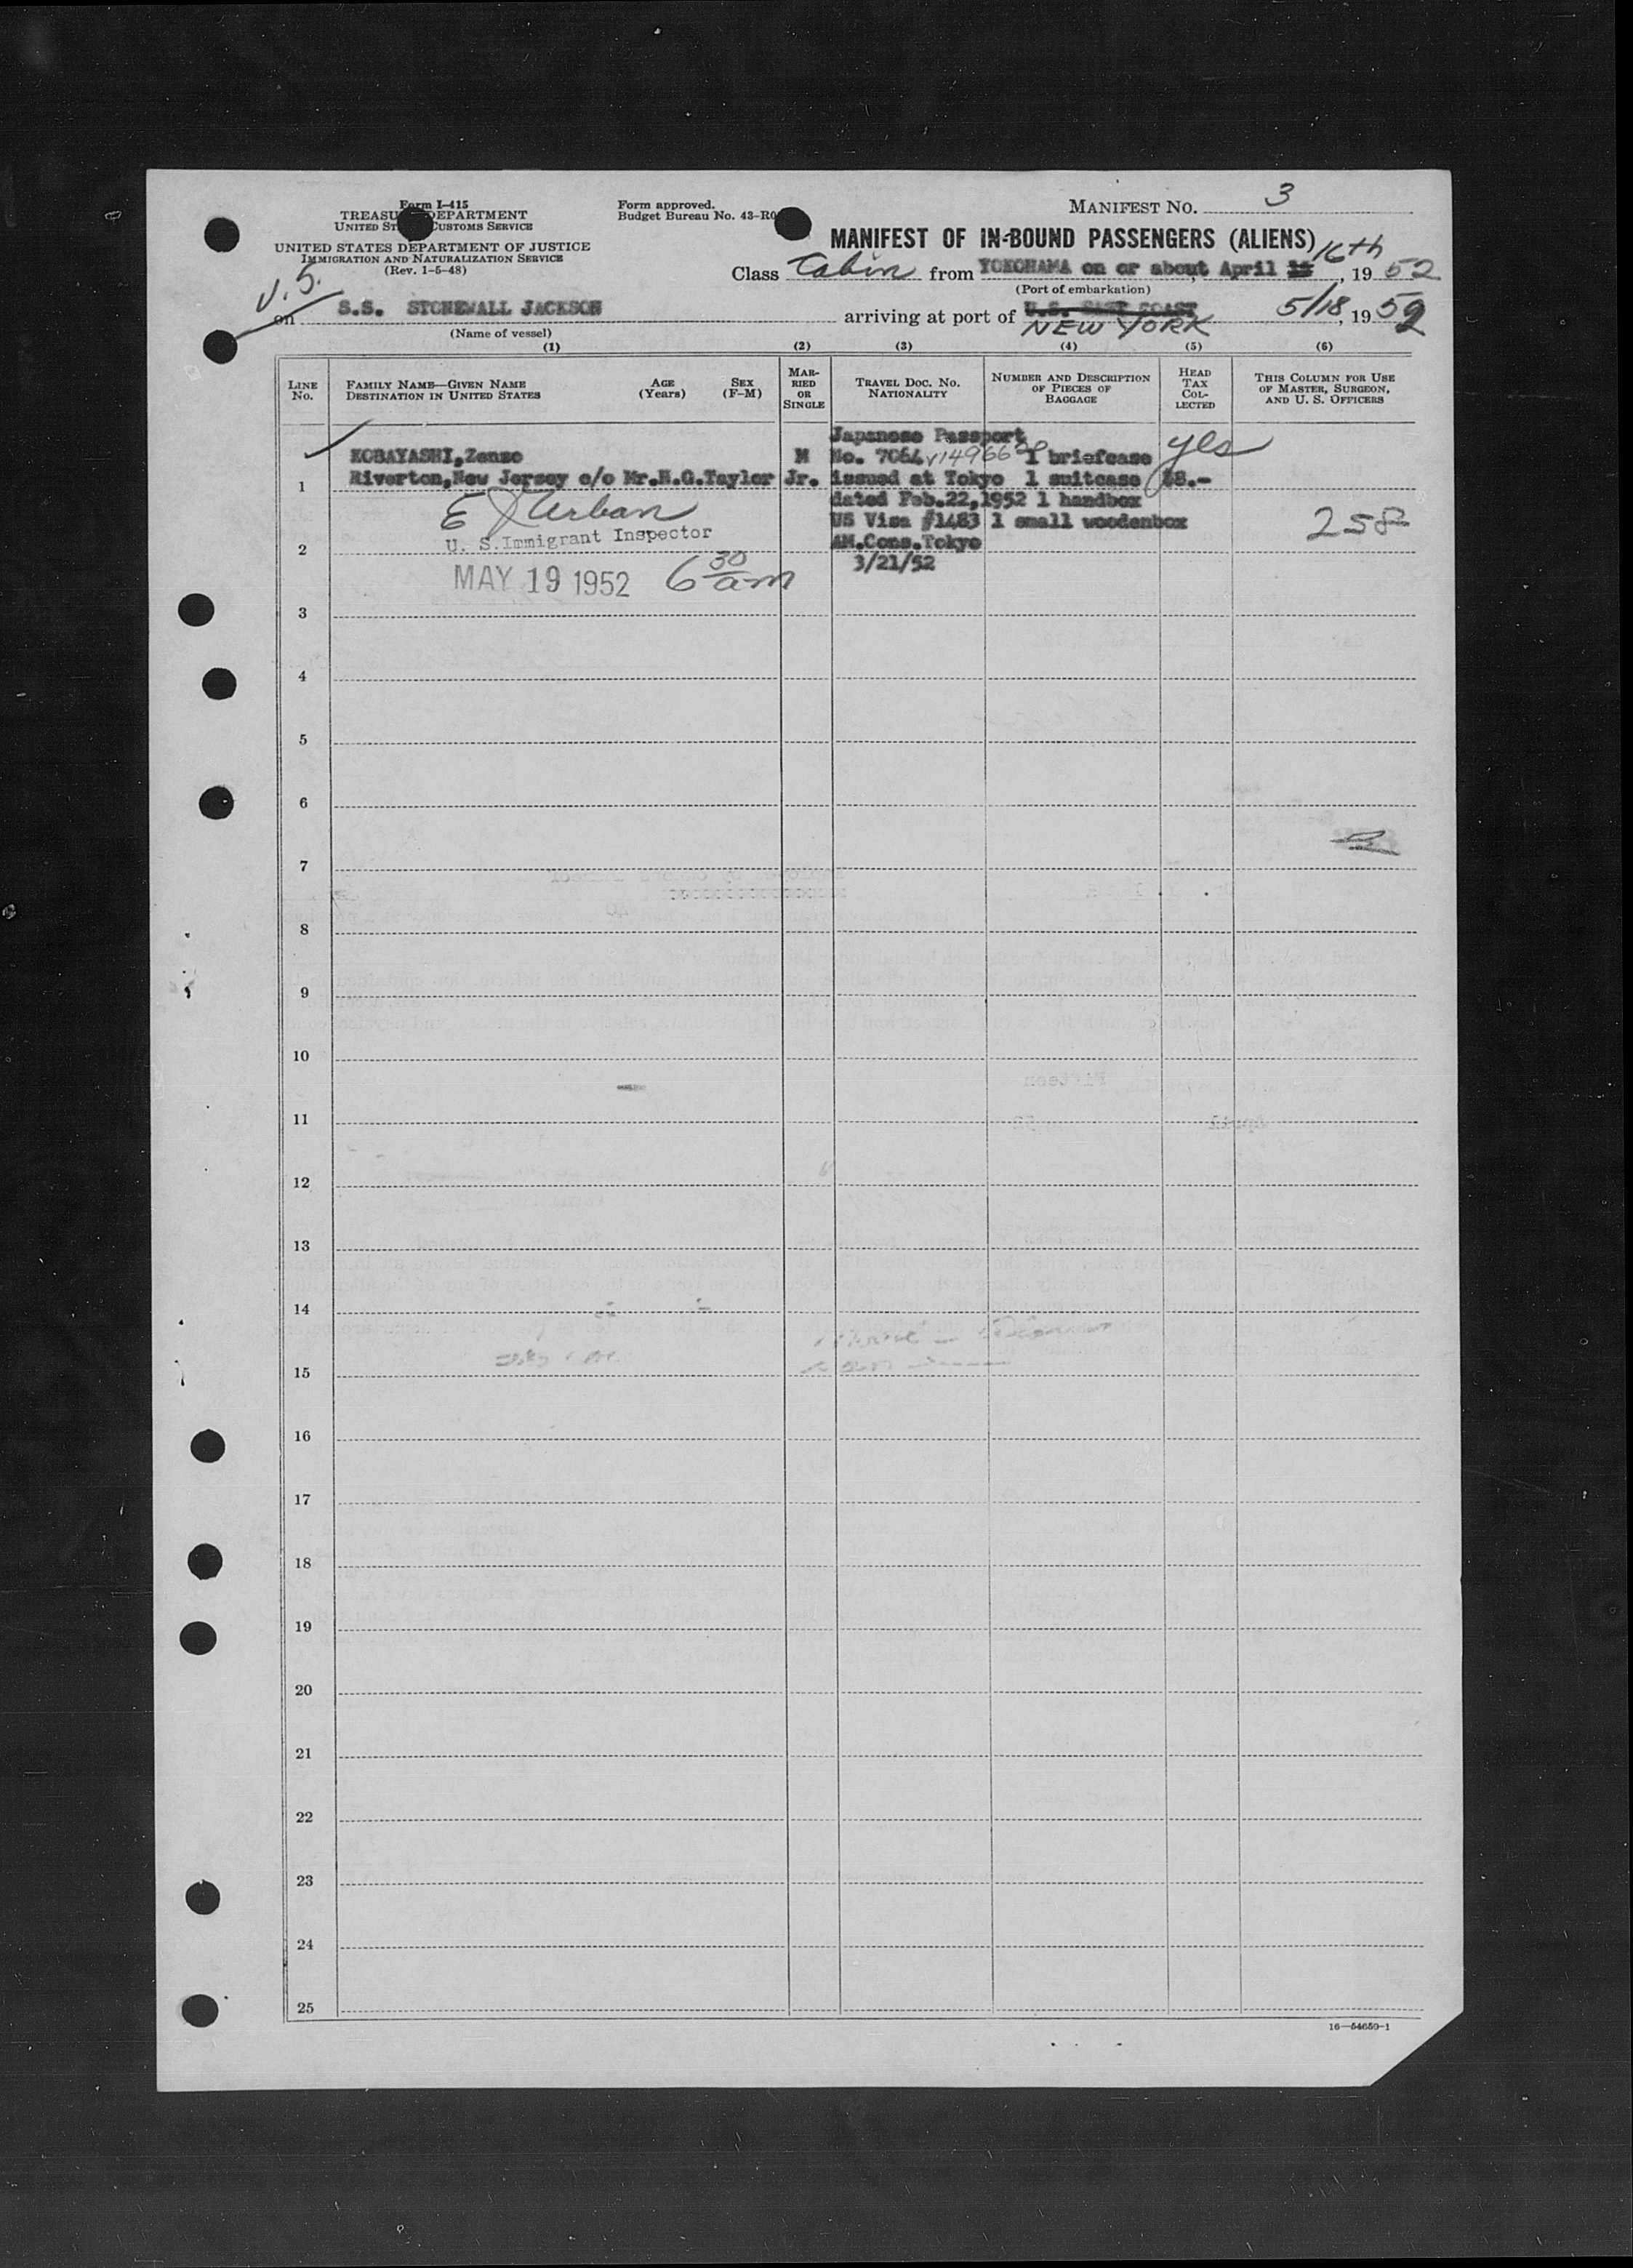 Form I-415
TREASU DEPARTMENT
UNITED ST CUSTOMS SERVICE
UNITED STATES DEPARTMENT OF JUSTICE
IMMIGRATION AND NATURALIZATION SERVICE
(Rev. 1-5-48)
Form approved.
Budget Bureau No. 43-R0
MANIFEST NO. 3
MANIFEST OF IN-BOUND PASSENGERS (ALIENS)
Class Cabin from YOKOHAMA on or about, April 16th, 19 52
(Port of embarkation)
U.S.
on S.S. STONEWALL JACKSON arriving at port of U.S. EAST COAST 5/18, 1952
NEW YORK
(Name of vessel)
(1) (2) (3) (4) (5) (6)
LINE NO.
FAMILY NAME—GIVEN NAME
DESTINATION IN UNITED STATES
AGE (Years)
SEX (F-M)
MARRIED OR SINGLE
TRAVEL DOC. NO. NATIONALITY
NUMBER AND DESCRIPTION OF PIECES OF BAGGAGE
HEAD TAX COLLECTED
THIS COLUMN FOR USE OF MASTER, SURGEON, AND U. S. OFFICERS
Japanese Passport
KOBAYASHI,Zenzo M No. 7064 1 briefcase yes
1 Riverton,New Jersey c/o Mr.H.G.Taylor Jr. issued at Tokyo 1 suitcase $8.-
dated Feb.22,1952 1 handbox
E J Urban US Visa #1483 1 small woodenbox 258
U. S. Immigrant Inspector
2 AM.Cons.Tokyo
3/21/52
MAY 19 1952 6 30 am
3
4
5
6
7
8
9
10
11
12
13
14
15
16
17
18
19
20
21
22
23
24
25
16—54650-1